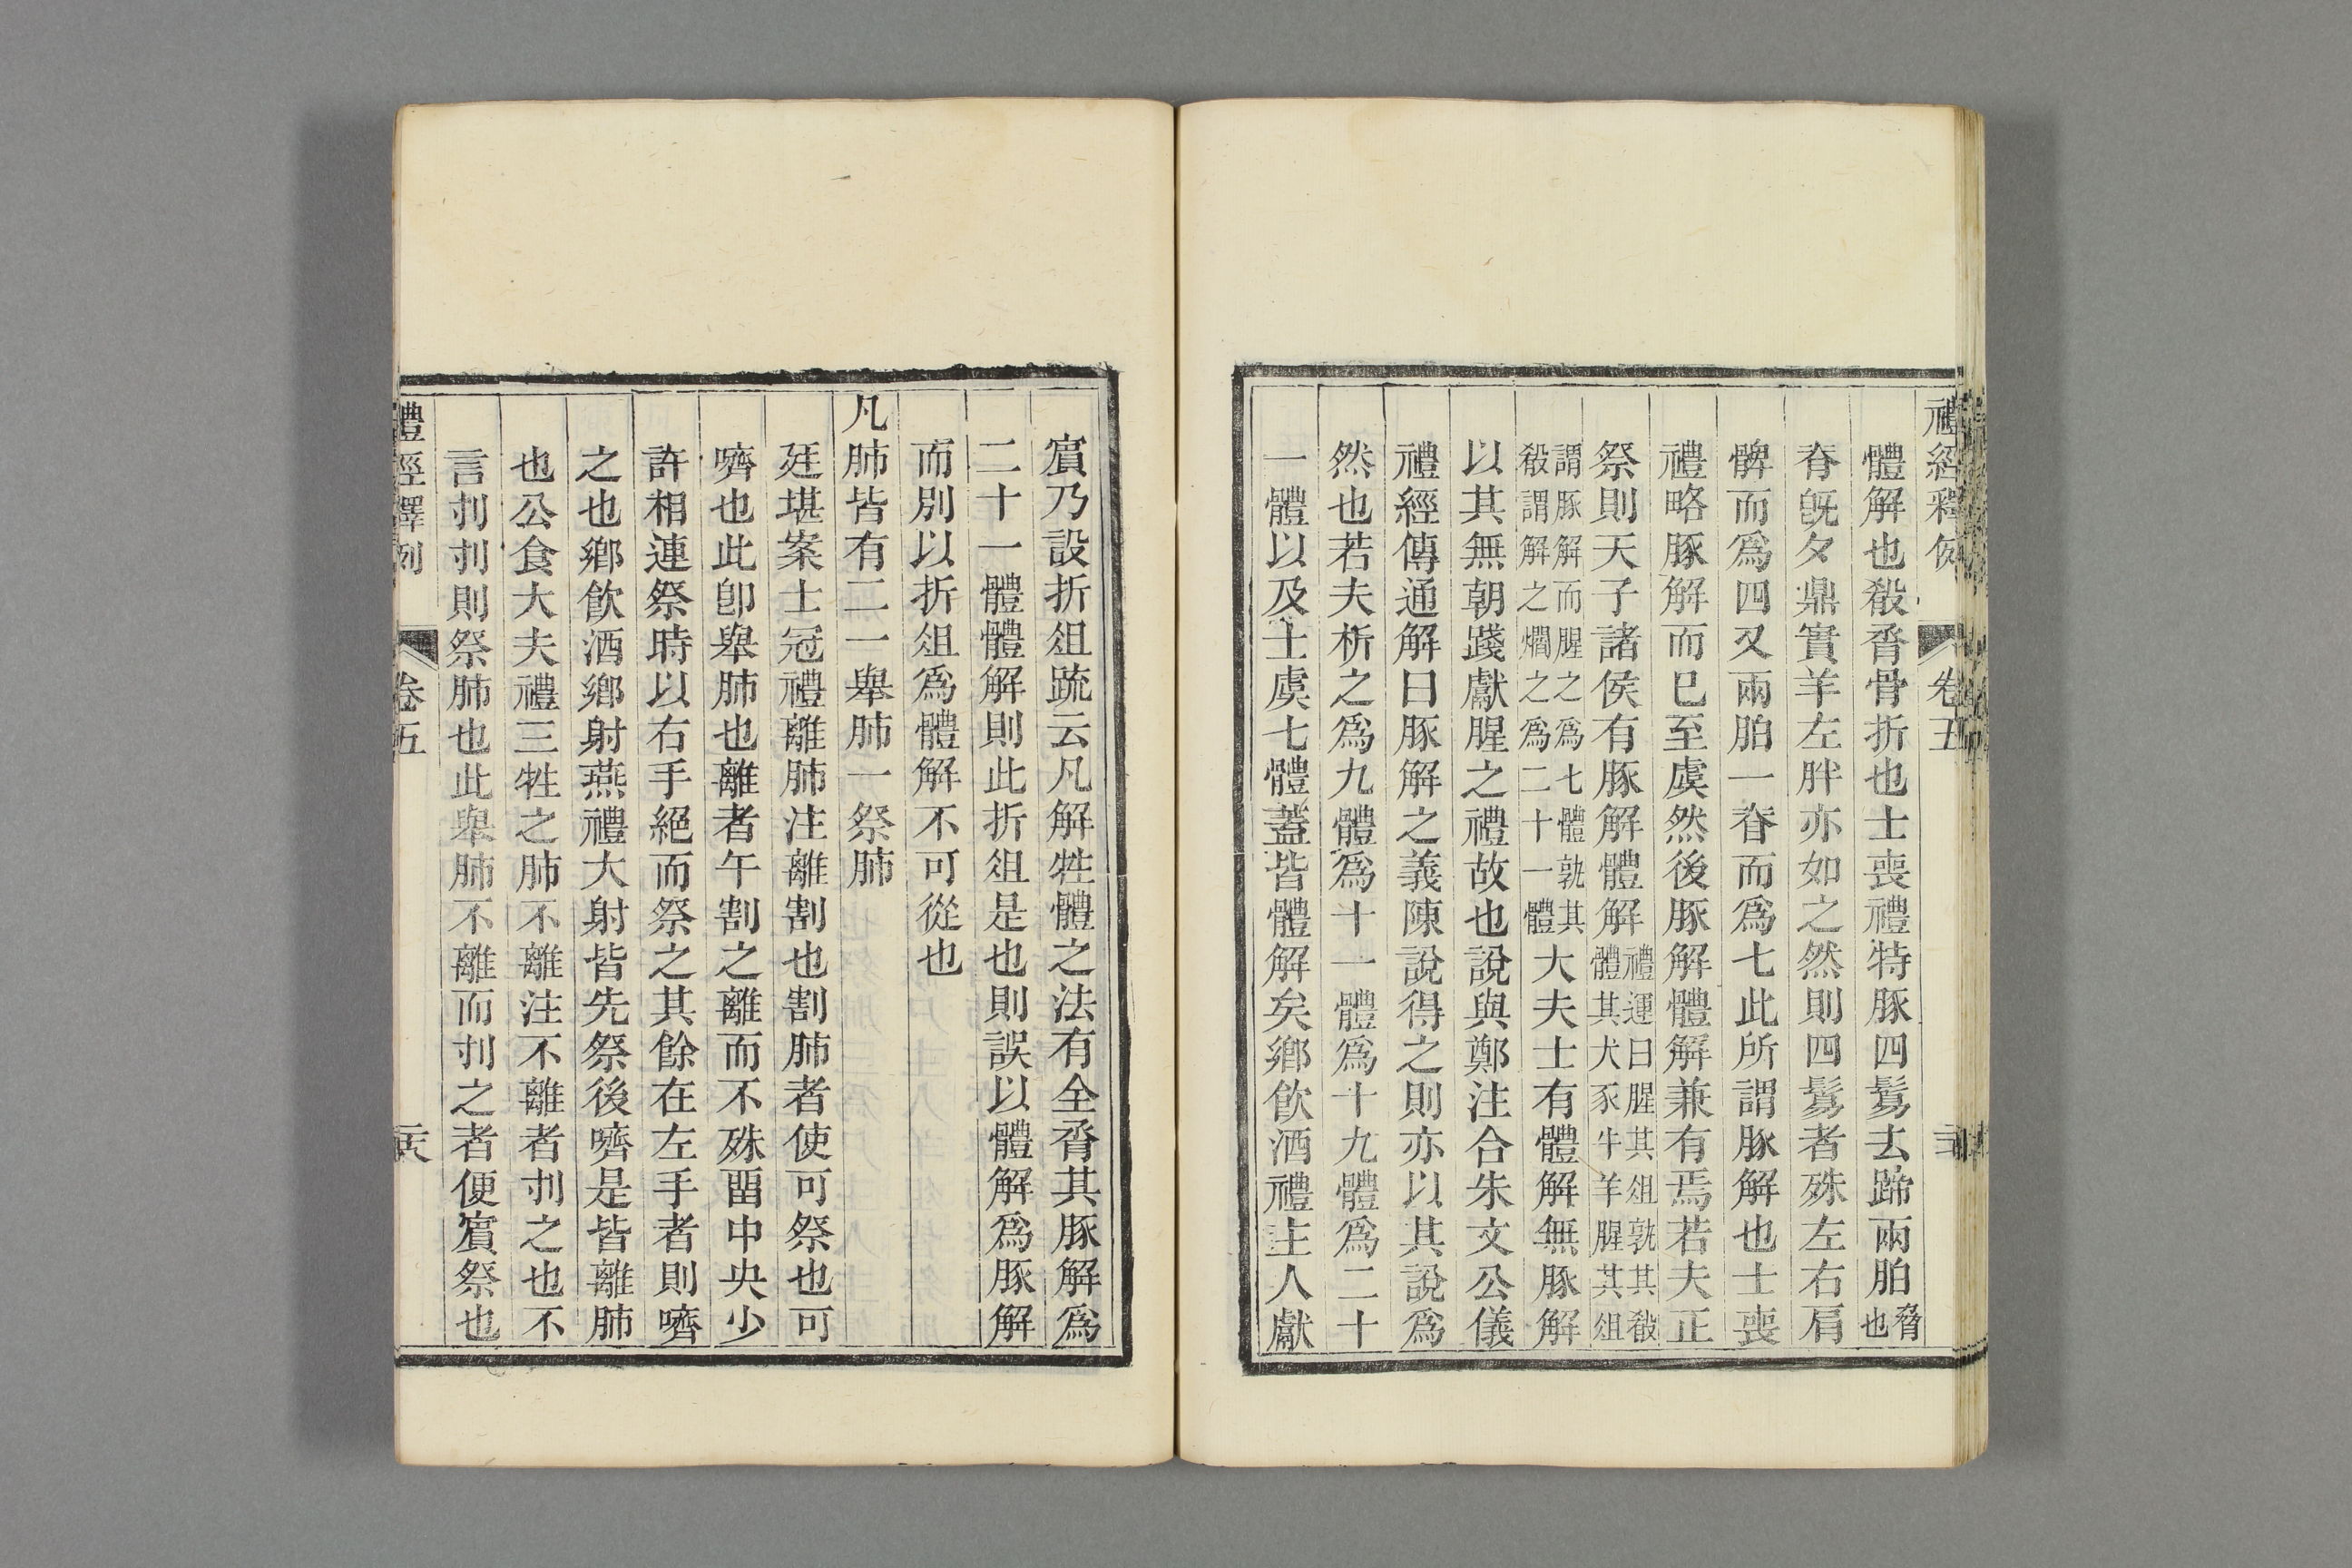 禮經釋例 卷五
體解也殽脀骨折也士喪禮特豚四鬄去蹄兩胉脅也
脊旣夕鼎實羊左胖亦如之然則四鬄者殊左右肩
髀而爲四又兩胉一脊而爲七此所謂豚解也士喪
禮略豚解而巳至虞然後豚解體解兼有焉若夫正
祭則天子諸侯有豚解體解禮運曰腥其俎孰其殽體其犬豕牛羊腥其俎
謂豚解而腥之爲七體孰其殽謂解之爓之爲二十一體大夫士有體解無豚解
以其無朝踐獻腥之禮故也說與鄭注合朱文公儀
禮經傳通解曰豚解之義陳說得之則亦以其說爲
然也若夫析之爲九體爲十一體爲十九體爲二十
一體以及士虞七體蓋皆體解矣鄉飮酒禮主人獻
賔乃設折俎疏云凡解牲體之法有全脀其豚解爲
二十一體體解則此折俎是也則誤以體解爲豚解
而別以折俎爲體解不可從也
凡肺皆有二一舉肺一祭肺
廷堪案士冠禮離肺注離割也割肺者使可祭也可
嚌也此卽舉肺也離者午割之離而不殊畱中央少
許相連祭時以右手絕而祭之其餘在左手者則嚌
之也鄉飮酒鄉射燕禮大射皆先祭後嚌是皆離肺
也公食大夫禮三牲之肺不離注不離者刌之也不
言刌刌則祭肺也此舉肺不離而刌之者便賔祭也
禮經釋例 卷五 二六